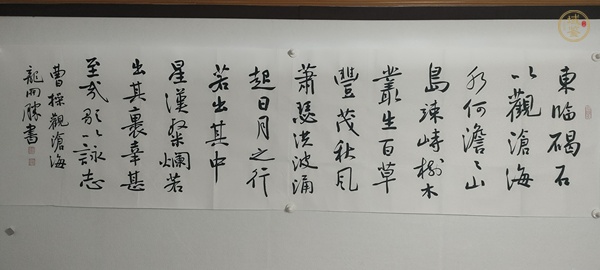 東临碣石
以觀滄海
水何澹〻山
島竦峙樹木
叢生百草
豐茂秋風
蕭瑟洪波涌
起日月之行
若出其中
星漢燦爛若
出其裏幸甚
至哉歌以詠志
曹操觀滄海
龍雨勝書